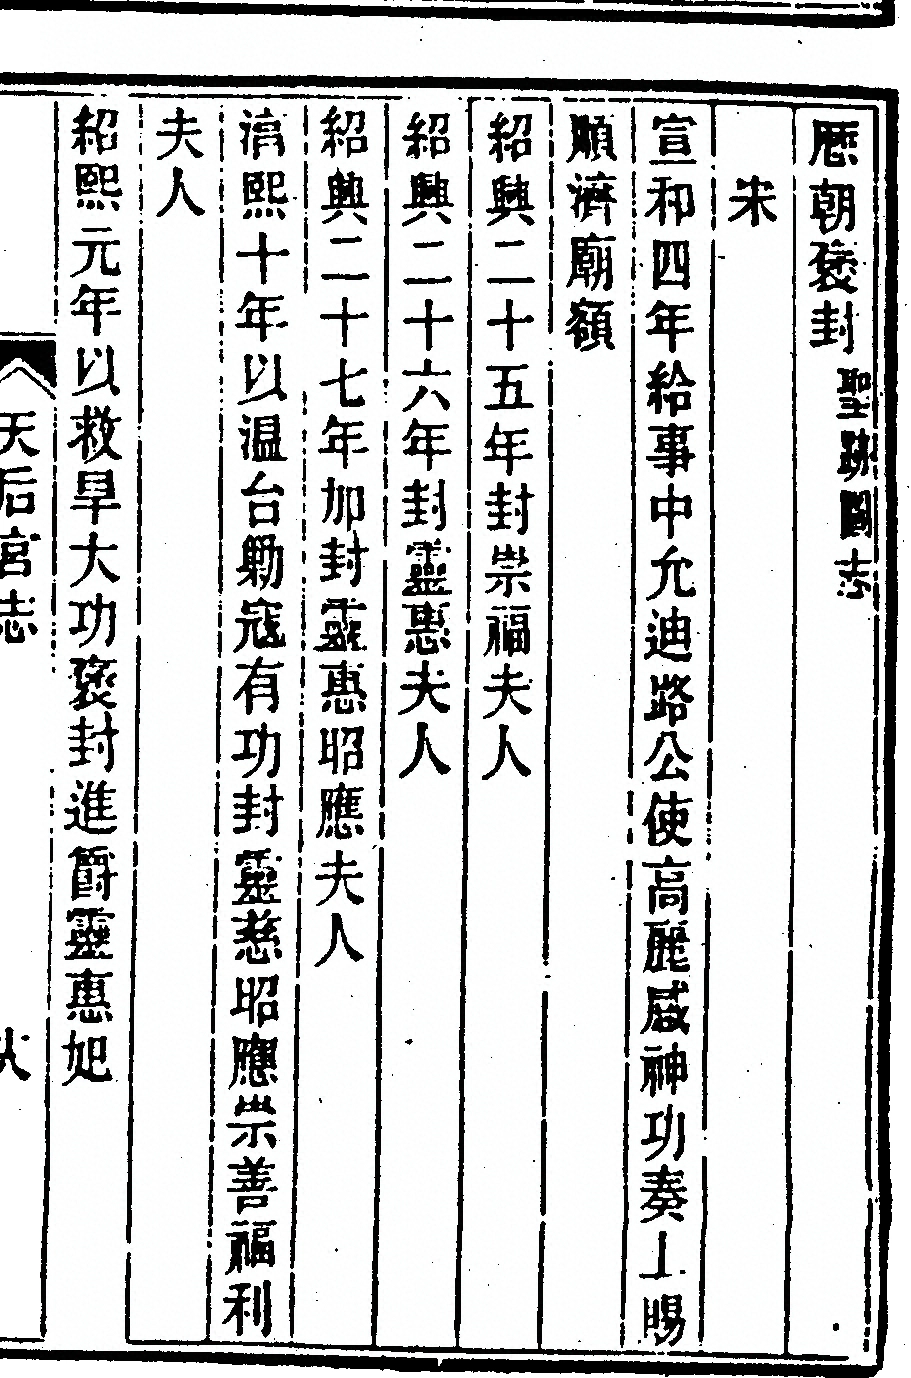 歷朝褒封 聖蹟圖志
宋
宣和四年給事中允迪路公使高麗感神功奏上賜
順濟廟額
紹興二十五年封崇福夫人
紹興二十六年封靈惠夫人
紹興二十七年加封靈惠昭應夫人
淳熙十年以温台勦寇有功封靈慈昭應崇善福利
夫人
紹熙元年以救旱大功褒封進爵靈惠妃
天后宮志 八